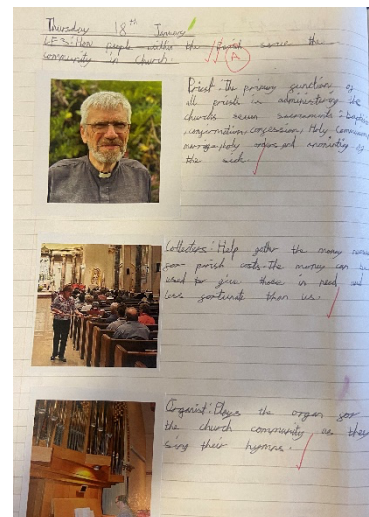 Thursday 18th January
LF3: How people within the Parish serve the
community in church.
A
Priest: The primary function of
all priests is administering the
churchs seven sacraments: baptism
, confirmation, confession, Holy Communion
marraige, holy orders and anointing of
the sick.
Collectors: Help gather the money
for parish costs. The money can be
used for give those in need and
less fortunate than us.
Organist: Plays the organ for
the church community as they
sing their hymns.